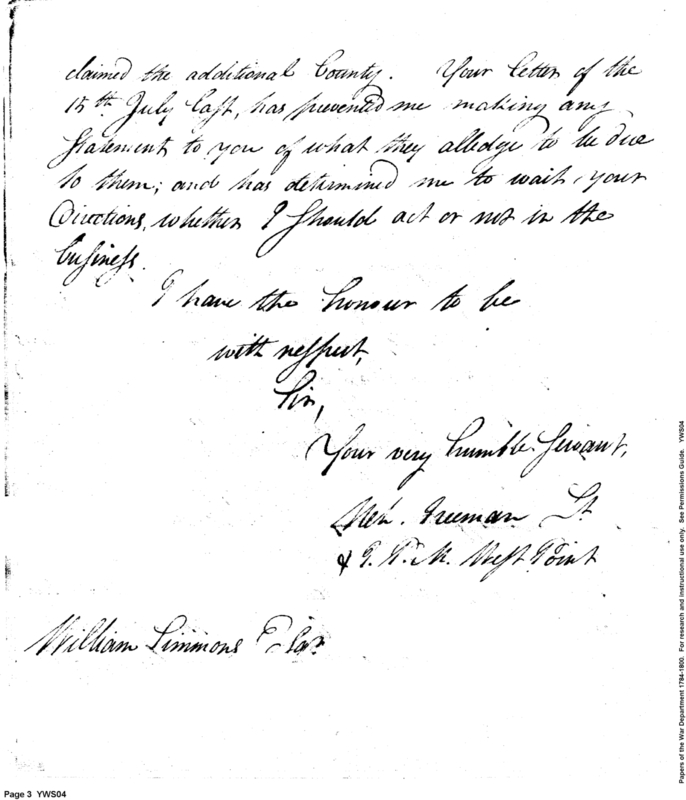 claimed the additional County. Your letter of the
15th July last, has prevented me making any
Statement to you of what they alledge to be due
to them; and has determined me to wait your
Directions, whether I should act or not in the
business.
I have the honour to be
with respect,
Sir,
Your very humble Servant,
Neh. Freeman Lt.
& P. M. West Point
William Simmons Esqr.
Page 3 YWS04
Papers of the War Department 1784-1800. For research and instructional use only. See Permissions Guide. YWS04